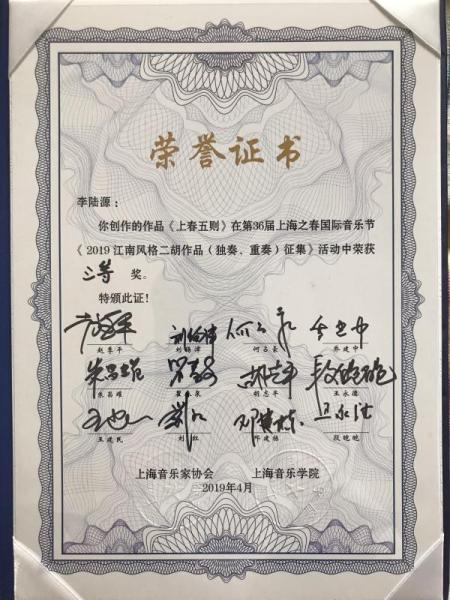 荣誉证书
李陆源：
你创作的作品《上春五则》在第36届上海之春国际音乐节
《2019江南风格二胡作品（独奏、重奏）征集》活动中荣获
三等 奖。
特颁此证！
赵季平 刘锡津 何占豪 乔建中
朱昌耀 胡志平 王永德
王建民 刘红 邓建栋 段皑皑
上海音乐家协会 上海音乐学院
2019年4月